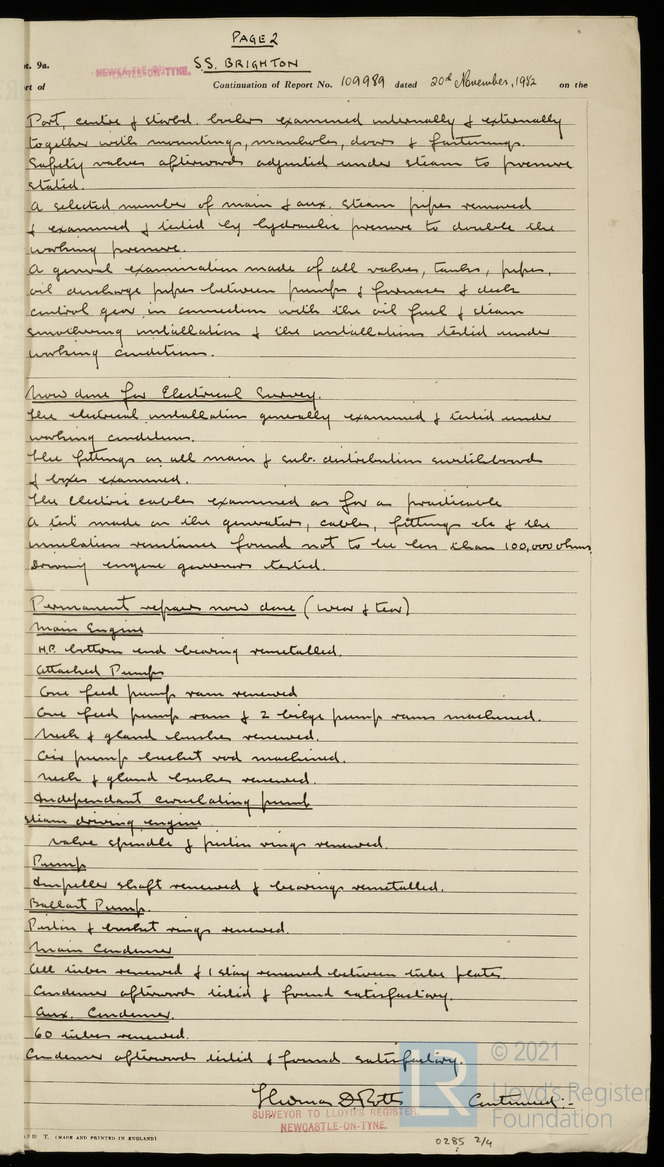 PAGE 2
pt. 9a.
NEWCASTLE-ON-TYNE.
SS. BRIGHTON
rt of
Continuation of Report No. 109989 dated 20th November, 1952 on the
Port, centre & starbd. boilers examined internally & externally
together with mountings, manholes, doors & fastenings.
Safety valves afterwards adjusted under steam to pressure
stated.
A selected number of main & aux. steam pipes removed
& examined & tested by hydraulic pressure to double the
working pressure.
A general examination made of all valves, tanks, pipes,
oil discharge pipes between pumps & furnaces & deck
control gear in connection with the oil fuel & steam
smothering installation & the installations tested under
working conditions.
Now done for Electrical Survey.
The electrical installation generally examined & tested under
working conditions.
The fittings on all main & sub. distribution switchboards
& boxes examined.
The electric cables examined as far as practicable
A test made on the generators, cables, fittings etc & the
insulation resistance found not to be less than 100,000 ohms.
Driving engine governors tested.
Permanent repairs now done (wear & tear)
Main Engine
H.P. bottom end bearing remetalled.
Attached Pumps
One feed pump ram renewed
One feed pump ram & 2 bilge pump rams machined.
Neck & gland bushes renewed.
Air pump bucket rod machined.
Neck & gland bushes renewed.
Independant circulating pump
Steam driving engine
valve spindle & piston rings renewed.
Pump
Impeller shaft renewed & bearings remetalled.
Ballast Pump.
Piston & bucket rings renewed.
Main Condenser
All tubes renewed & 1 stay renewed between tube plates.
Condenser afterwards tested & found satisfactory.
Aux. Condenser.
60 tubes renewed.
Condenser afterwards tested & found satisfactory.
Thomas D. Continued:-
SURVEYOR TO LLOYD'S REGISTER.
NEWCASTLE-ON-TYNE.
T. (MADE AND PRINTED IN ENGLAND)
0285 2/4
LR © 2021
Lloyd's Register
Foundation